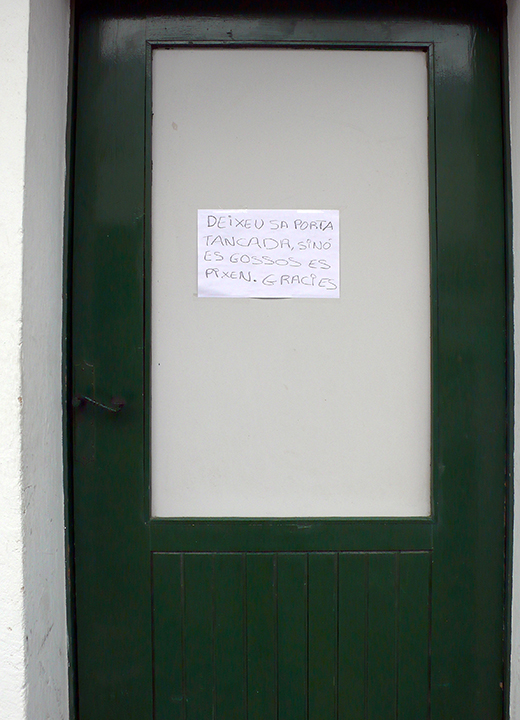 DEIXEU SA PORTA
TANCADA, SINÓ
ES GOSSOS ES
PIXEN. GRACIES